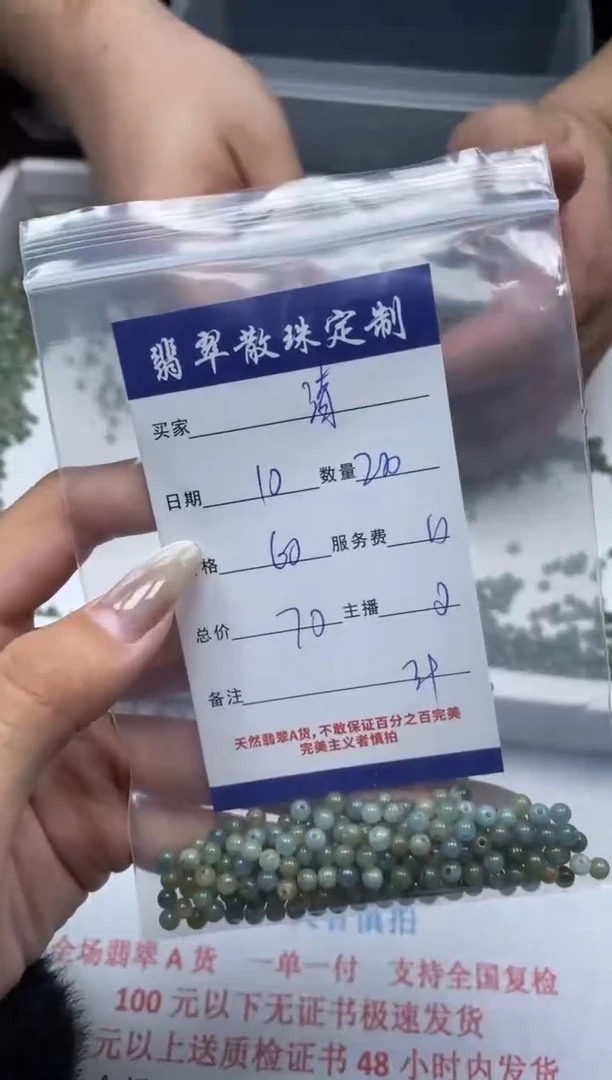 翡翠散珠定制
买家 清
日期 10 数量 200
格 60 服务费 10
总价 70 主播 2
备注
天然翡翠A货,不敢保证百分之百完美
完美主义者慎拍
者慎拍
全场翡翠A货 一单一付 支持全国复检
100元以下无证书极速发货
元以上送质检证书48小时内发货